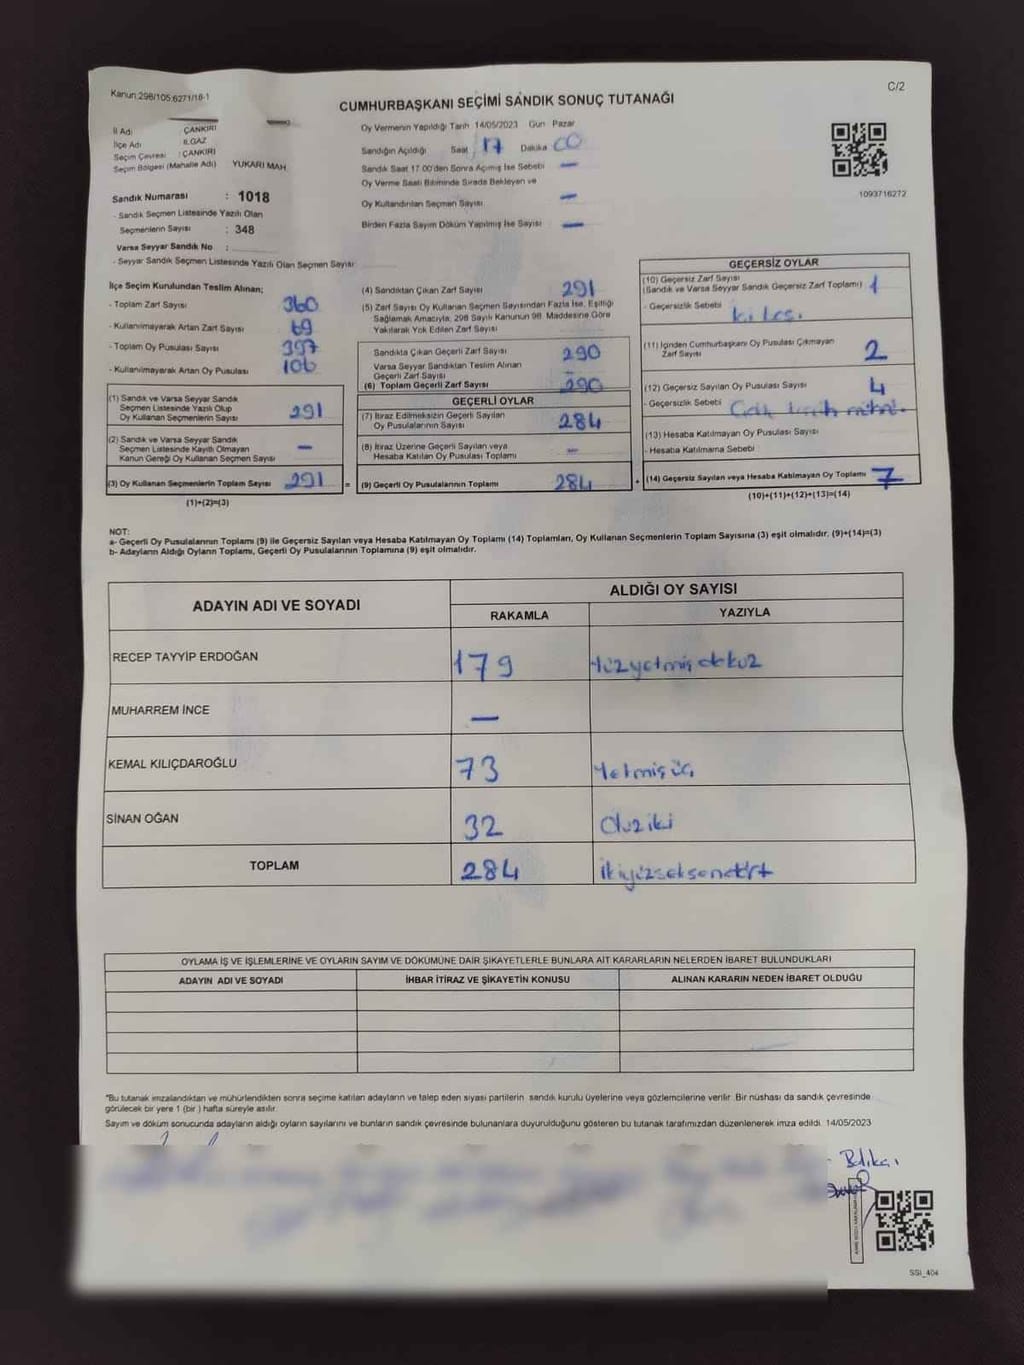 Kanun:298/105:6271/18-1
C/2
CUMHURBAŞKANI SEÇİMİ SANDIK SONUÇ TUTANAĞI
İl Adı ÇANKIRI
İlçe Adı ILGAZ
Seçim Çevresi : ÇANKIRI
Seçim Bölgesi (Mahalle Adı) YUKARI MAH
Sandık Numarası : 1018
- Sandık Seçmen Listesinde Yazılı Olan
Seçmenlerin Sayısı : 348
Varsa Seyyar Sandık No :
- Seyyar Sandık Seçmen Listesinde Yazılı Olan Seçmen Sayısı
Oy Vermenin Yapıldığı Tarih 14/05/2023 Gün Pazar
Sandığın Açıldığı Saat 17 Dakika 00
Sandık Saat 17.00'den Sonra Açılmış İse Sebebi —
Oy Verme Saati Bitiminde Sırada Bekleyen ve
Oy Kullandırılan Seçmen Sayısı —
Birden Fazla Sayım Döküm Yapılmış İse Sayısı —
1093716272
İlçe Seçim Kurulundan Teslim Alınan;
- Toplam Zarf Sayısı 360
- Kullanılmayarak Artan Zarf Sayısı 69
- Toplam Oy Pusulası Sayısı 397
- Kullanılmayarak Artan Oy Pusulası 106
(1) Sandık ve Varsa Seyyar Sandık
Seçmen Listesinde Yazılı Olup
Oy Kullanan Seçmenlerin Sayısı 291
(2) Sandık ve Varsa Seyyar Sandık
Seçmen Listesinde Kayıtlı Olmayan
Kanun Gereği Oy Kullanan Seçmen Sayısı —
(3) Oy Kullanan Seçmenlerin Toplam Sayısı 291 =
(1)+(2)=(3)
(4) Sandıktan Çıkan Zarf Sayısı 291
(5) Zarf Sayısı Oy Kullanan Seçmen Sayısından Fazla İse, Eşitliği
Sağlamak Amacıyla, 298 Sayılı Kanunun 98. Maddesine Göre
Yakılarak Yok Edilen Zarf Sayısı
Sandıkta Çıkan Geçerli Zarf Sayısı 290
Varsa Seyyar Sandıktan Teslim Alınan
Geçerli Zarf Sayısı
(6) Toplam Geçerli Zarf Sayısı 290
GEÇERLİ OYLAR
(7) İtiraz Edilmeksizin Geçerli Sayılan
Oy Pusulalarının Sayısı 284
(8) İtiraz Üzerine Geçerli Sayılan veya
Hesaba Katılan Oy Pusulası Toplamı —
(9) Geçerli Oy Pusulalarının Toplamı 284 +
GEÇERSİZ OYLAR
(10) Geçersiz Zarf Sayısı
(Sandık ve Varsa Seyyar Sandık Geçersiz Zarf Toplamı) 1
- Geçersizlik Sebebi
(11) İçinden Cumhurbaşkanı Oy Pusulası Çıkmayan
Zarf Sayısı 2
(12) Geçersiz Sayılan Oy Pusulası Sayısı 4
- Geçersizlik Sebebi
(13) Hesaba Katılmayan Oy Pusulası Sayısı
- Hesaba Katılmama Sebebi
(14) Geçersiz Sayılan veya Hesaba Katılmayan Oy Toplamı 7
(10)+(11)+(12)+(13)=(14)
NOT:
a- Geçerli Oy Pusulalarının Toplamı (9) ile Geçersiz Sayılan veya Hesaba Katılmayan Oy Toplamı (14) Toplamları, Oy Kullanan Seçmenlerin Toplam Sayısına (3) eşit olmalıdır. (9)+(14)=(3)
b- Adayların Aldığı Oyların Toplamı, Geçerli Oy Pusulalarının Toplamına (9) eşit olmalıdır.
ADAYIN ADI VE SOYADI
ALDIĞI OY SAYISI
RAKAMLA YAZIYLA
RECEP TAYYİP ERDOĞAN 179 Yüzyetmişdokuz
MUHARREM İNCE —
KEMAL KILIÇDAROĞLU 73 Yetmişüç
SİNAN OĞAN 32 Otuziki
TOPLAM 284 İkiyüzseksendört
OYLAMA İŞ VE İŞLEMLERİNE VE OYLARIN SAYIM VE DÖKÜMÜNE DAİR ŞİKAYETLERLE BUNLARA AİT KARARLARIN NELERDEN İBARET BULUNDUKLARI
ADAYIN ADI VE SOYADI İHBAR İTİRAZ VE ŞİKAYETİN KONUSU ALINAN KARARIN NEDEN İBARET OLDUĞU
*Bu tutanak imzalandıktan ve mühürlendikten sonra seçime katılan adayların ve talep eden siyasi partilerin sandık kurulu üyelerine veya gözlemcilerine verilir. Bir nüshası da sandık çevresinde
görülecek bir yere 1 (bir ) hafta süreyle asılır.
Sayım ve döküm sonucunda adayların aldığı oyların sayılarını ve bunların sandık çevresinde bulunanlara duyurulduğunu gösteren bu tutanak tarafımızdan düzenlenerek imza edildi. 14/05/2023
SSI_404